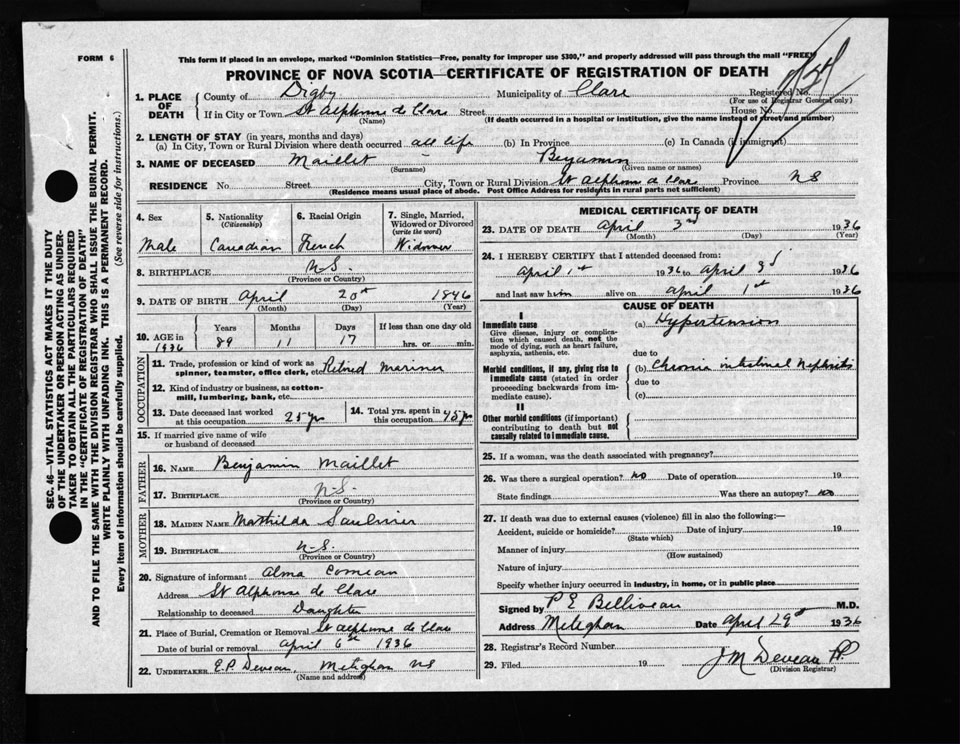 FORM 6
This form if placed in an envelope, marked "Dominion Statistics—Free, penalty for improper use $300," and properly addressed will pass through the mail "FREE"
PROVINCE OF NOVA SCOTIA—CERTIFICATE OF REGISTRATION OF DEATH
1. PLACE OF DEATH
County of Digby Municipality of Clare Registered No.
(For use of Registrar General only)
If in City or Town St Alphonse de Clare Street House No.
(Name) (If death occurred in a hospital or institution, give the name instead of street and number)
2. LENGTH OF STAY (in years, months and days)
(a) In City, Town or Rural Division where death occurred all life (b) In Province (c) In Canada (if immigrant)
3. NAME OF DECEASED Maillet - Benjamin
(Surname) (Given name or names)
RESIDENCE No. Street City, Town or Rural Division St Alphonse de Clare Province NS
(Residence means usual place of abode. Post Office Address for residents in rural parts not sufficient)
4. Sex 5. Nationality (Citizenship) 6. Racial Origin 7. Single, Married, Widowed or Divorced (write the word)
Male Canadian French Widower
8. BIRTHPLACE N-S.
(Province or Country)
9. DATE OF BIRTH April 20th 1846
(Month) (Day) (Year)
10. AGE in 1936 Years Months Days If less than one day old
89 11 17 hrs. or min.
OCCUPATION
11. Trade, profession or kind of work as spinner, teamster, office clerk, etc. Retired Mariner
12. Kind of industry or business, as cotton-mill, lumbering, bank, etc.
13. Date deceased last worked at this occupation 25 yrs 14. Total yrs. spent in this occupation 45 yrs
15. If married give name of wife or husband of deceased
FATHER
16. NAME Benjamin Maillet
17. BIRTHPLACE N-S.
(Province or Country)
MOTHER
18. MAIDEN NAME Matthilda Saulnier
19. BIRTHPLACE N-S.
(Province or Country)
20. Signature of informant Alma Comeau
Address St Alphonse de Clare
Relationship to deceased Daughter
21. Place of Burial, Cremation or Removal St Alphonse de Clare
Date of burial or removal April 6th 1936
22. UNDERTAKER E.P. Deveau, Meteghan NS
(Name and address)
MEDICAL CERTIFICATE OF DEATH
23. DATE OF DEATH April 3rd 1936
(Month) (Day) (Year)
24. I HEREBY CERTIFY that I attended deceased from:
April 1st 1936 to April 3d 1936
and last saw him alive on April 1st 1936
CAUSE OF DEATH
I
Immediate cause
Give disease, injury or complication which caused death, not the mode of dying, such as heart failure, asphyxia, asthenia, etc.
(a) Hypertension
due to
Morbid conditions, if any, giving rise to immediate cause (stated in order proceeding backwards from immediate cause).
(b) Chronic Nephritis
due to
(c)
II
Other morbid conditions (if important) contributing to death but not causally related to immediate cause.
25. If a woman, was the death associated with pregnancy?
26. Was there a surgical operation? no Date of operation 19
State findings Was there an autopsy? no
27. If death was due to external causes (violence) fill in also the following:—
Accident, suicide or homicide? Date of injury 19
(State which)
Manner of injury
(How sustained)
Nature of injury
Specify whether injury occurred in industry, in home, or in public place
Signed by P E Belliveau M.D.
Address Meteghan Date April 29th 1936
28. Registrar's Record Number
29. Filed 19 J M Deveau
(Division Registrar)
SEC. 46—VITAL STATISTICS ACT MAKES IT THE DUTY
OF THE UNDERTAKER OR PERSON ACTING AS UNDER-
TAKER TO OBTAIN ALL THE PARTICULARS REQUIRED
IN THE "CERTIFICATE OF REGISTRATION OF DEATH"
AND TO FILE THE SAME WITH THE DIVISION REGISTRAR WHO SHALL ISSUE THE BURIAL PERMIT.
WRITE PLAINLY WITH UNFADING INK. THIS IS A PERMANENT RECORD.
Every item of information should be carefully supplied. (See reverse side for instructions.)